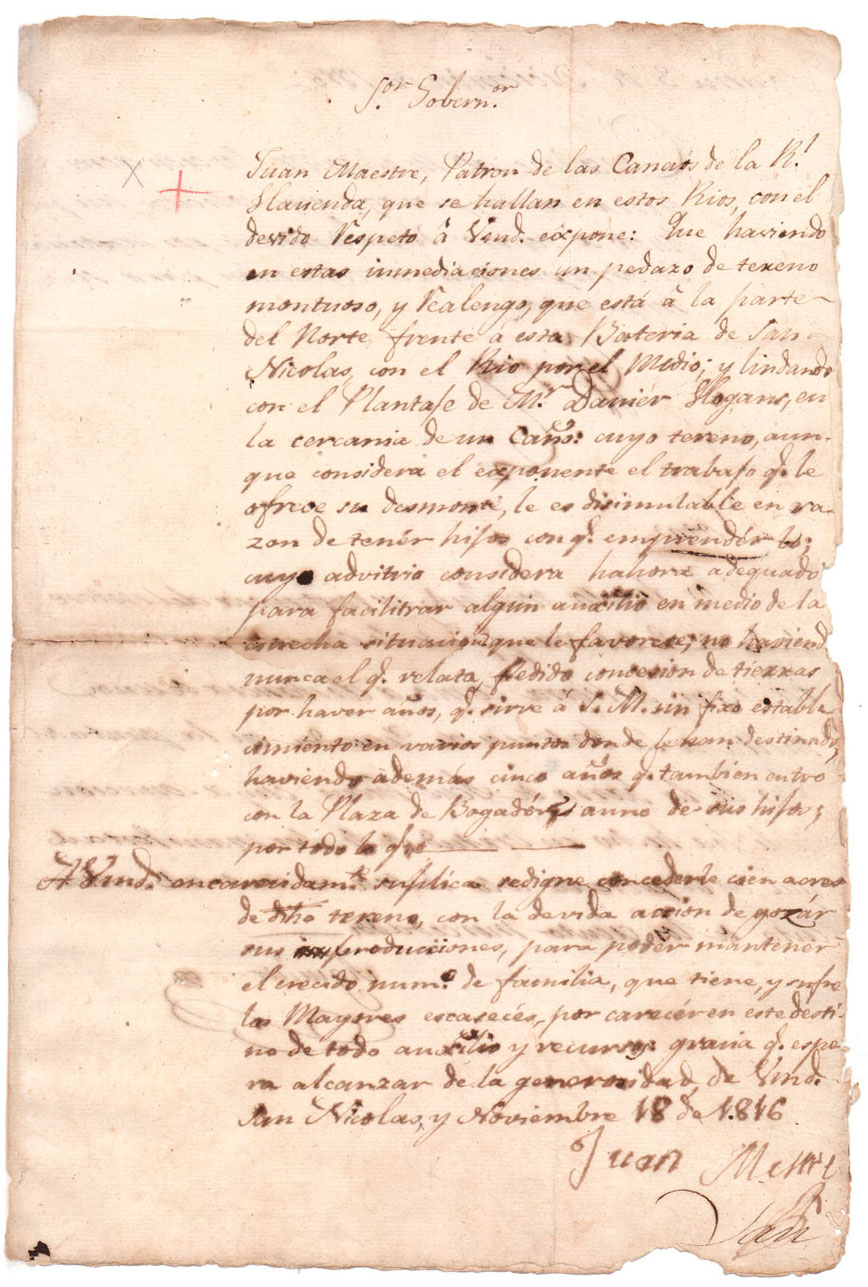 Sor. Governor.
Juan Maestre, Patron de las Canoas de la Rl.
Hacienda, que se hallan en estos Rios, con el
devido respeto â Vmd. expone: Que haviendo
en estas immediaciones un pedazo de tereno
montuoso, y realengo, que está â la parte
del Norte frente â esta Bateria de San
Nicolas, con el Rio por el medio; y lindando
con el Plantaje de Mr. Daniér Hogans, en
la cercania de un Caño: cuyo tereno, aun-
que considera el exponente el trabajo q. le
ofrece su desmonte, le es disimulable en ra-
zon de tenér hijos con q. emprendér lo;
cuyo advitrio considera hahora adequado
para facilitrar algun auxilio en medio de la
estrecha situacion que le favorese; no haviend
nunca el q. relata, pedido concesion de tierras
por haver años, q. sirve â S. M. sin fixo estable
cimiento en varios puntos donde le han destinado,
haviendo además cinco años q. tambien entro
con la Plaza de Bogadór a uno de sus hijos;
por todo lo que
A Vmd. encarecidamte. suplica se digne concederle cien acres
de dicho tereno, con la devida acción de gozár
sus producciones, para poder mantener
el crecido numo. de familia, que tiene, y sufre
las Mayores escasecés, por carecér en este desti-
no de todo auxilio y recurso: gracia q. espe-
ra alcanzar de la generosidad, de Vmd.
San Nicolas, y Noviembre 18 de 1816
Juan Mestre